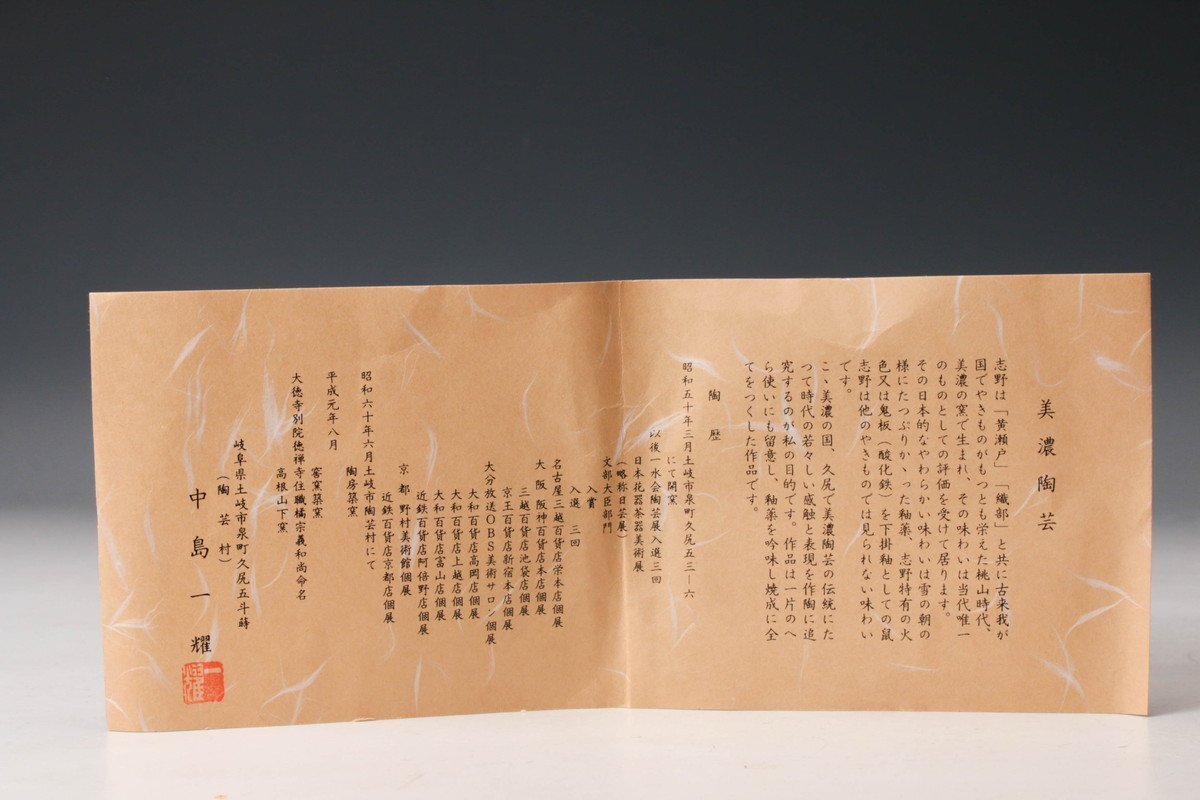 美濃陶芸
志野は「黄瀬戸」「織部」と共に古来我が
国でやきものがもつとも栄えた桃山時代、
美濃の窯で生まれ、その味わいは当代唯一
のものとしての評価を受けて居ります。
その日本的なやわらかい味わいは雪の朝の
様にたっぷりかゝった釉薬、志野特有の火
色又は鬼板（酸化鉄）を下掛釉としての鼠
志野は他のやきものでは見られない味わい
です。
こゝ美濃の国、久尻で美濃陶芸の伝統にた
つて時代の若々しい感触と表現を作陶に追
究するのが私の目的です。作品は一片のへ
ら使いにも留意し、釉薬を吟味し焼成に全
てをつくした作品です。
陶歴
昭和五十年三月土岐市泉町久尻五三―六
にて開窯
以後一水会陶芸展入選三回
日本花器茶器美術展
（略称日芸展）
文部大臣部門
入賞
入選 三回
名古屋三越百貨店栄本店個展
大阪阪神百貨店本店個展
三越百貨店池袋店個展
京王百貨店新宿本店個展
大分放送OBS美術サロン個展
大和百貨店高岡店個展
大和百貨店上越店個展
大和百貨店富山店個展
近鉄百貨店阿倍野店個展
京都野村美術館個展
近鉄百貨店京都店個展
昭和六十年六月土岐市陶芸村にて
陶房築窯
平成元年八月
窖窯築窯
大徳寺別院徳禅寺住職橘宗義和尚命名
高根山下窯
岐阜県土岐市泉町久尻五斗蒔
（陶芸村）
中島一耀
一耀